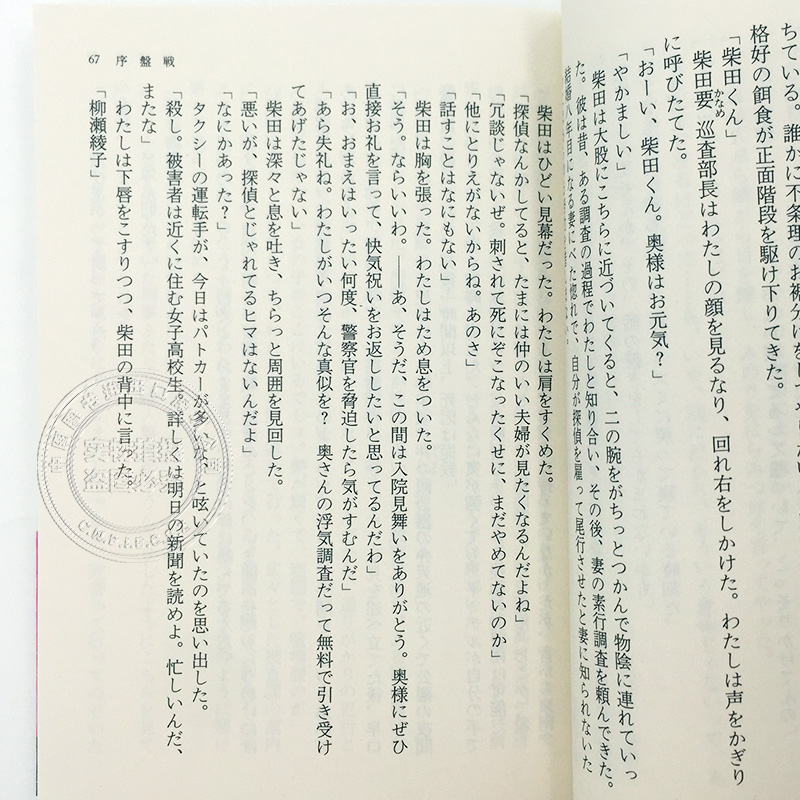 ちている。誰かに不条理のお裾分けをして
格好の餌食が正面階段を駆け下りてきた。
「柴田くん」
柴田要巡査部長はわたしの顔を見るなり、回れ右をしかけた。わたしは声をかぎり
かなめ
に呼びたてた。
「おーい、柴田くん。奥様はお元気?」
「やかましい」
柴田は大股にこちらに近づいてくると、二の腕をがちっとつかんで物陰に連れていっ
た。彼は昔、ある調査の過程でわたしと知り合い、その後、妻の素行調査を頼んできた。
結婚八年目になる妻にべた惚れで、自分が探偵を雇って尾行させたと妻に知られないた
67 序盤戦
柴田はひどい見幕だった。わたしは肩をすくめた。
「探偵なんかしてると、たまには仲のいい夫婦が見たくなるんだよね」
「冗談じゃないぜ。刺されて死にぞこなったくせに、まだやめてないのか」
「他にとりえがないからね。あのさ」
「話すことはなにもない」
柴田は胸を張った。わたしはため息をついた。
「そう。ならいいわ。――あ、そうだ、この間は入院見舞いをありがとう。奥様にぜひ
直接お礼を言って、快気祝いをお返ししたいと思ってるんだわ」
「お、おまえはいったい何度、警察官を脅迫したら気がすむんだ」
「あら失礼ね。わたしがいつそんな真似を? 奥さんの浮気調査だって無料で引き受け
てあげたじゃない」
柴田は深々と息を吐き、ちらっと周囲を見回した。
「悪いが、探偵とじゃれてるヒマはないんだよ」
「なにかあった?」
タクシーの運転手が、今日はパトカーが多いな、と呟いていたのを思い出した。
「殺し。被害者は近くに住む女子高校生。詳しくは明日の新聞を読めよ。忙しいんだ、
またな」
わたしは下唇をこすりつつ、柴田の背中に言った。
「柳瀬綾子」